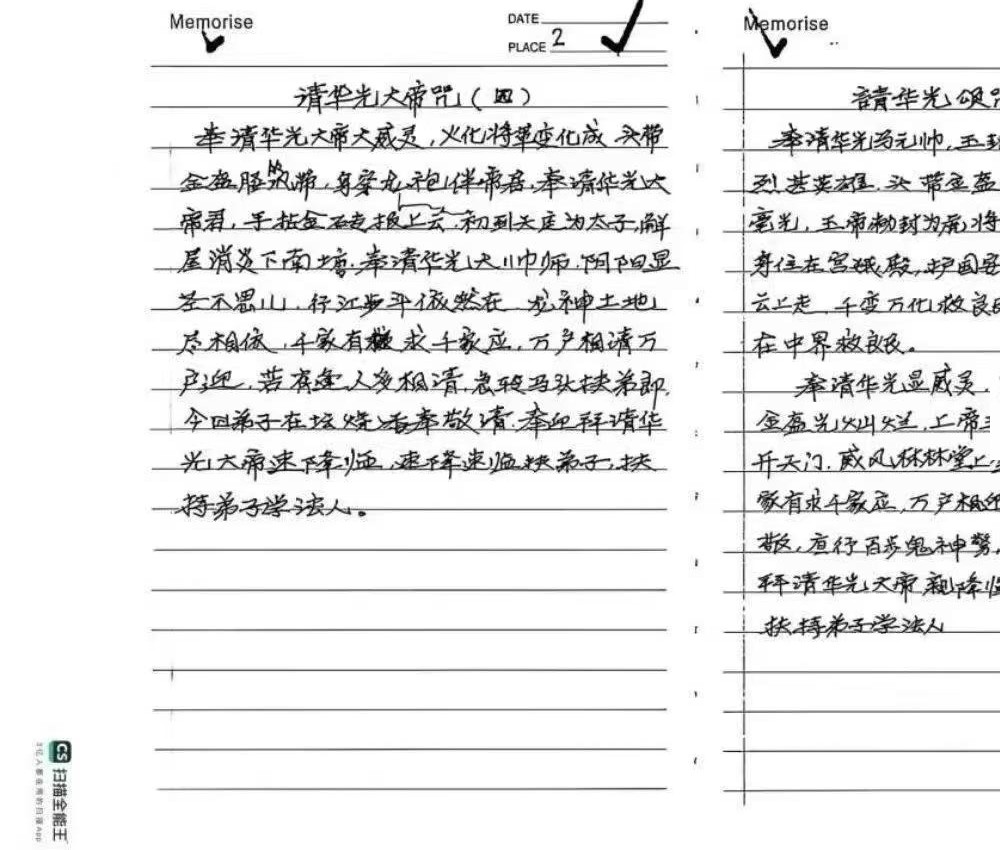 Memorise
DATE
PLACE 2
请华光大帝咒（四）
奉请华光大帝大威灵，火化将军变化成 头带
金盔胫风带，身穿龙袍伴帝君，奉请华光大
帝君，手拈金砖抛上云 初到天庭为太子，解
厄消灾下南 奉请华光大帅师 阴阳显
圣不思 行江步斗依然在 龙神土地
尽相依，千家有求千家应，万户相请万
户迎，苦有 人多相请，急转马头扶弟郎，
今日弟子在坛烧香奉敬请，奉迎拜请华
光大帝速下降临，速降速临扶弟子，扶
持弟子学法人。
Memorise
請华光颂
奉请华光马元帅，玉封
烈甚英雄，头带金盔
毫光，玉帝勅封为 将
身住在宫 殿，护国
云上走，千变万化救良
在中界救良民。
奉请华光显威灵，
金盔光灿烂，上帝
开天门，威风林林堂上
家有求千家应，万户相迎
敬，直行百步鬼神惊，
拜请华光大帝亲降临
扶持弟子学法人
CS 扫描全能王
3亿人都在用的扫描App